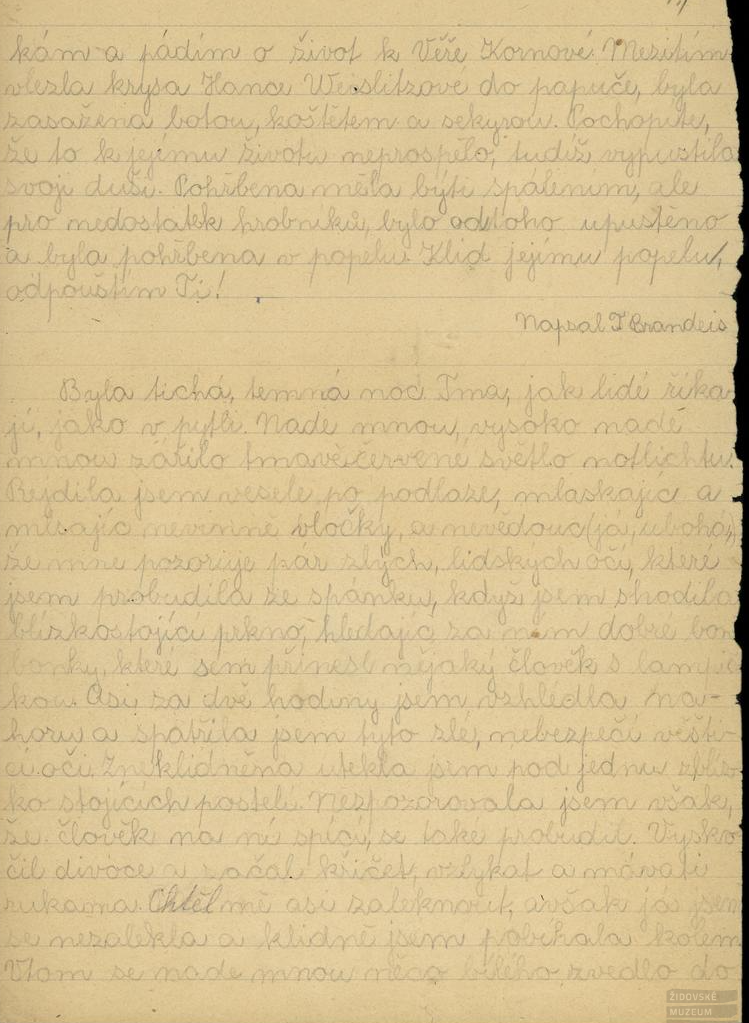 kám a pádím o život k Věře Kornové. Mezitím
vlezla krysa Hance Weislitzové do papuče, byla
zasažena botou, koštětem a sekyrou. Pochopíte,
že to k jejímu životu neprospělo, tudíž vypustila
svoji duši. Pohřbena měla býti spálením, ale
pro nedostatek hrobníků, bylo od toho upuštěno
a byla pohřbena v popelu. Klid jejímu popelu,
odpouštím Ti!
Napsal T Brandeis
Byla tichá, temná noc. Tma, jak lidé říka-
jí, jako v pytli. Nade mnou, vysoko nade
mnou zářilo tmavěčervené světlo notlichtu.
Rejdila jsem vesele po podlaze, mlaskajíc a
mlsajíc nevinně vločky, a nevědouc (já, ubohá),
že mne pozoruje pár zlých, lidských očí, které
jsem probudila ze spánku, když jsem shodila
blízkostojící prkno, hledajíc za ním dobré bon
bonky, které sem přinesl nějaký člověk s lampič
kou. Asi za dvě hodiny jsem vzhlédla na-
horu a spatřila jsem tyto zlé, nebezpečí věští-
cí oči. Zneklidněna utekla jsem pod jednu zblíz
ko stojících postelí. Nezpozorovala jsem však,
že člověk na ní spící, se také probudil. Vysko
čil divoce a začal křičet, vzlykat a mávati
rukama. Chtěl mě asi zaleknout, avšak já jsem
se nezalekla a klidně jsem pobíhala kolem
Vtom se nade mnou něco bílého zvedlo do
ŽIDOVSKÉ
MUZEUM